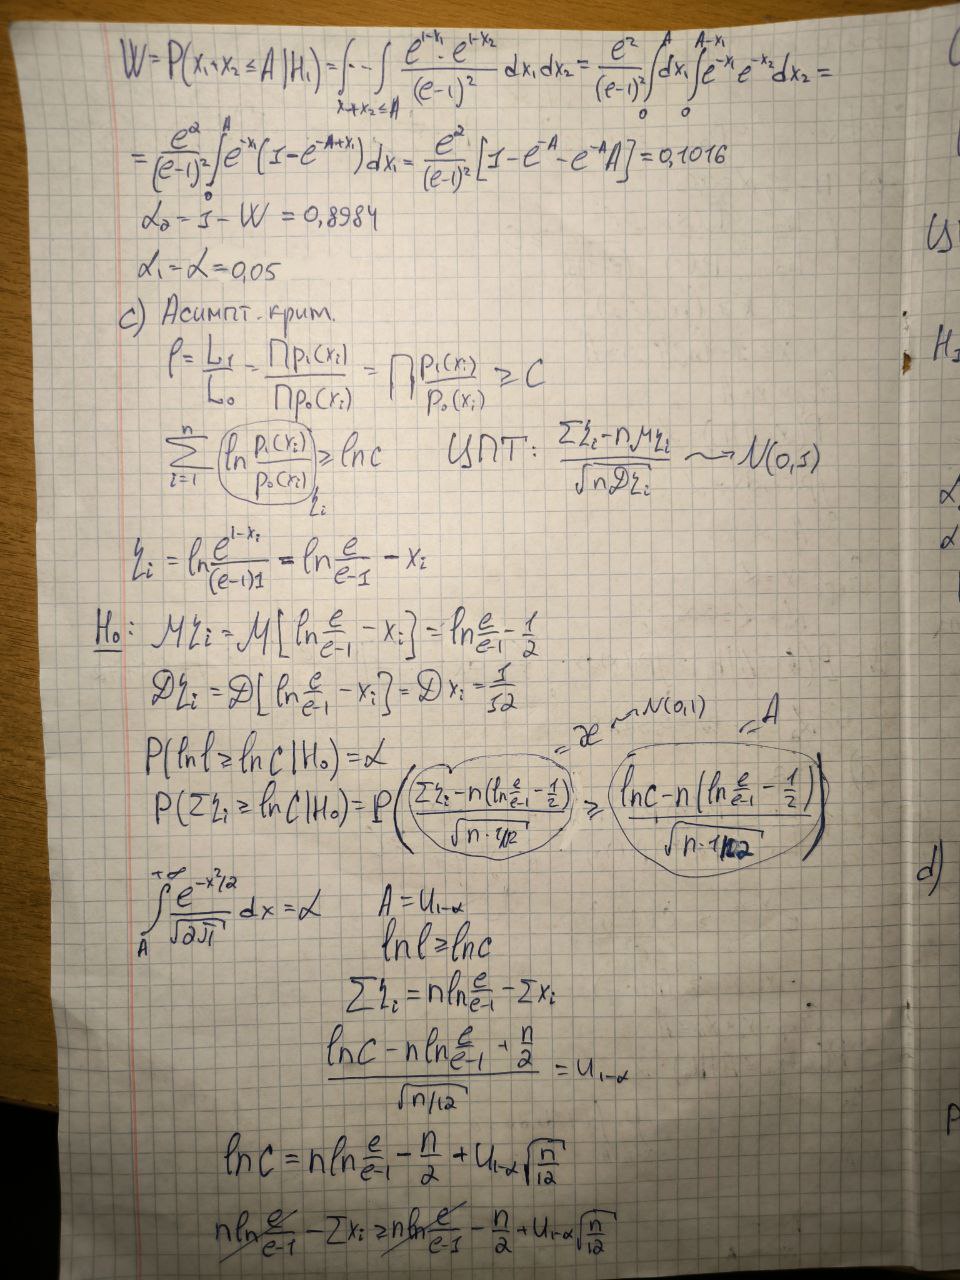 W = P(x₁+x₂ ≤ A | H₁) = ∫···∫_{x₁+x₂≤A} (e^{1-x₁}·e^{1-x₂})/(e-1)² dx₁dx₂ = e²/(e-1)² ∫₀^A dx₁ ∫₀^{A-x₁} e^{-x₁} e^{-x₂} dx₂ =
= e²/(e-1)² ∫₀^A e^{-x₁}(1-e^{-A+x₁})dx₁ = e²/(e-1)² [1-e^{-A}-e^{-A}A] = 0,1016
α₂ = 1 - W = 0,8984
α₁ = α = 0,05
c) Асимпт. крит.
l = L₁/L₀ = Πp₁(xᵢ)/Πp₀(xᵢ) = Π p₁(xᵢ)/p₀(xᵢ) ≥ C
Σ_{i=1}^n ln p₁(xᵢ)/p₀(xᵢ) ≥ ln C ηᵢ ЦПТ: (Σηᵢ - nMηᵢ)/√(nDηᵢ) ⇝ N(0,1)
ηᵢ = ln e^{1-xᵢ}/((e-1)1) = ln e/(e-1) - xᵢ
H₀: Mηᵢ = M[ln e/(e-1) - xᵢ] = ln e/(e-1) - 1/2
Dηᵢ = D[ln e/(e-1) - xᵢ] = Dxᵢ = 1/12
= ϰ ⇝ N(0,1) = A
P(ln l ≥ ln C | H₀) = α
P(Σηᵢ ≥ ln C | H₀) = P( (Σηᵢ - n(ln e/(e-1) - 1/2))/√(n·1/12) ≥ (ln C - n(ln e/(e-1) - 1/2))/√(n·1/12) )
∫_A^{+∞} e^{-x²/2}/√(2π) dx = α A = u_{1-α}
ln l ≥ ln C
Σηᵢ = n ln e/(e-1) - Σxᵢ
(ln C - n ln e/(e-1) + n/2)/√(n/12) = u_{1-α}
ln C = n ln e/(e-1) - n/2 + u_{1-α} √(n/12)
n ln e/(e-1) - Σxᵢ ≥ n ln e/(e-1) - n/2 + u_{1-α} √(n/12)
H₁
d)